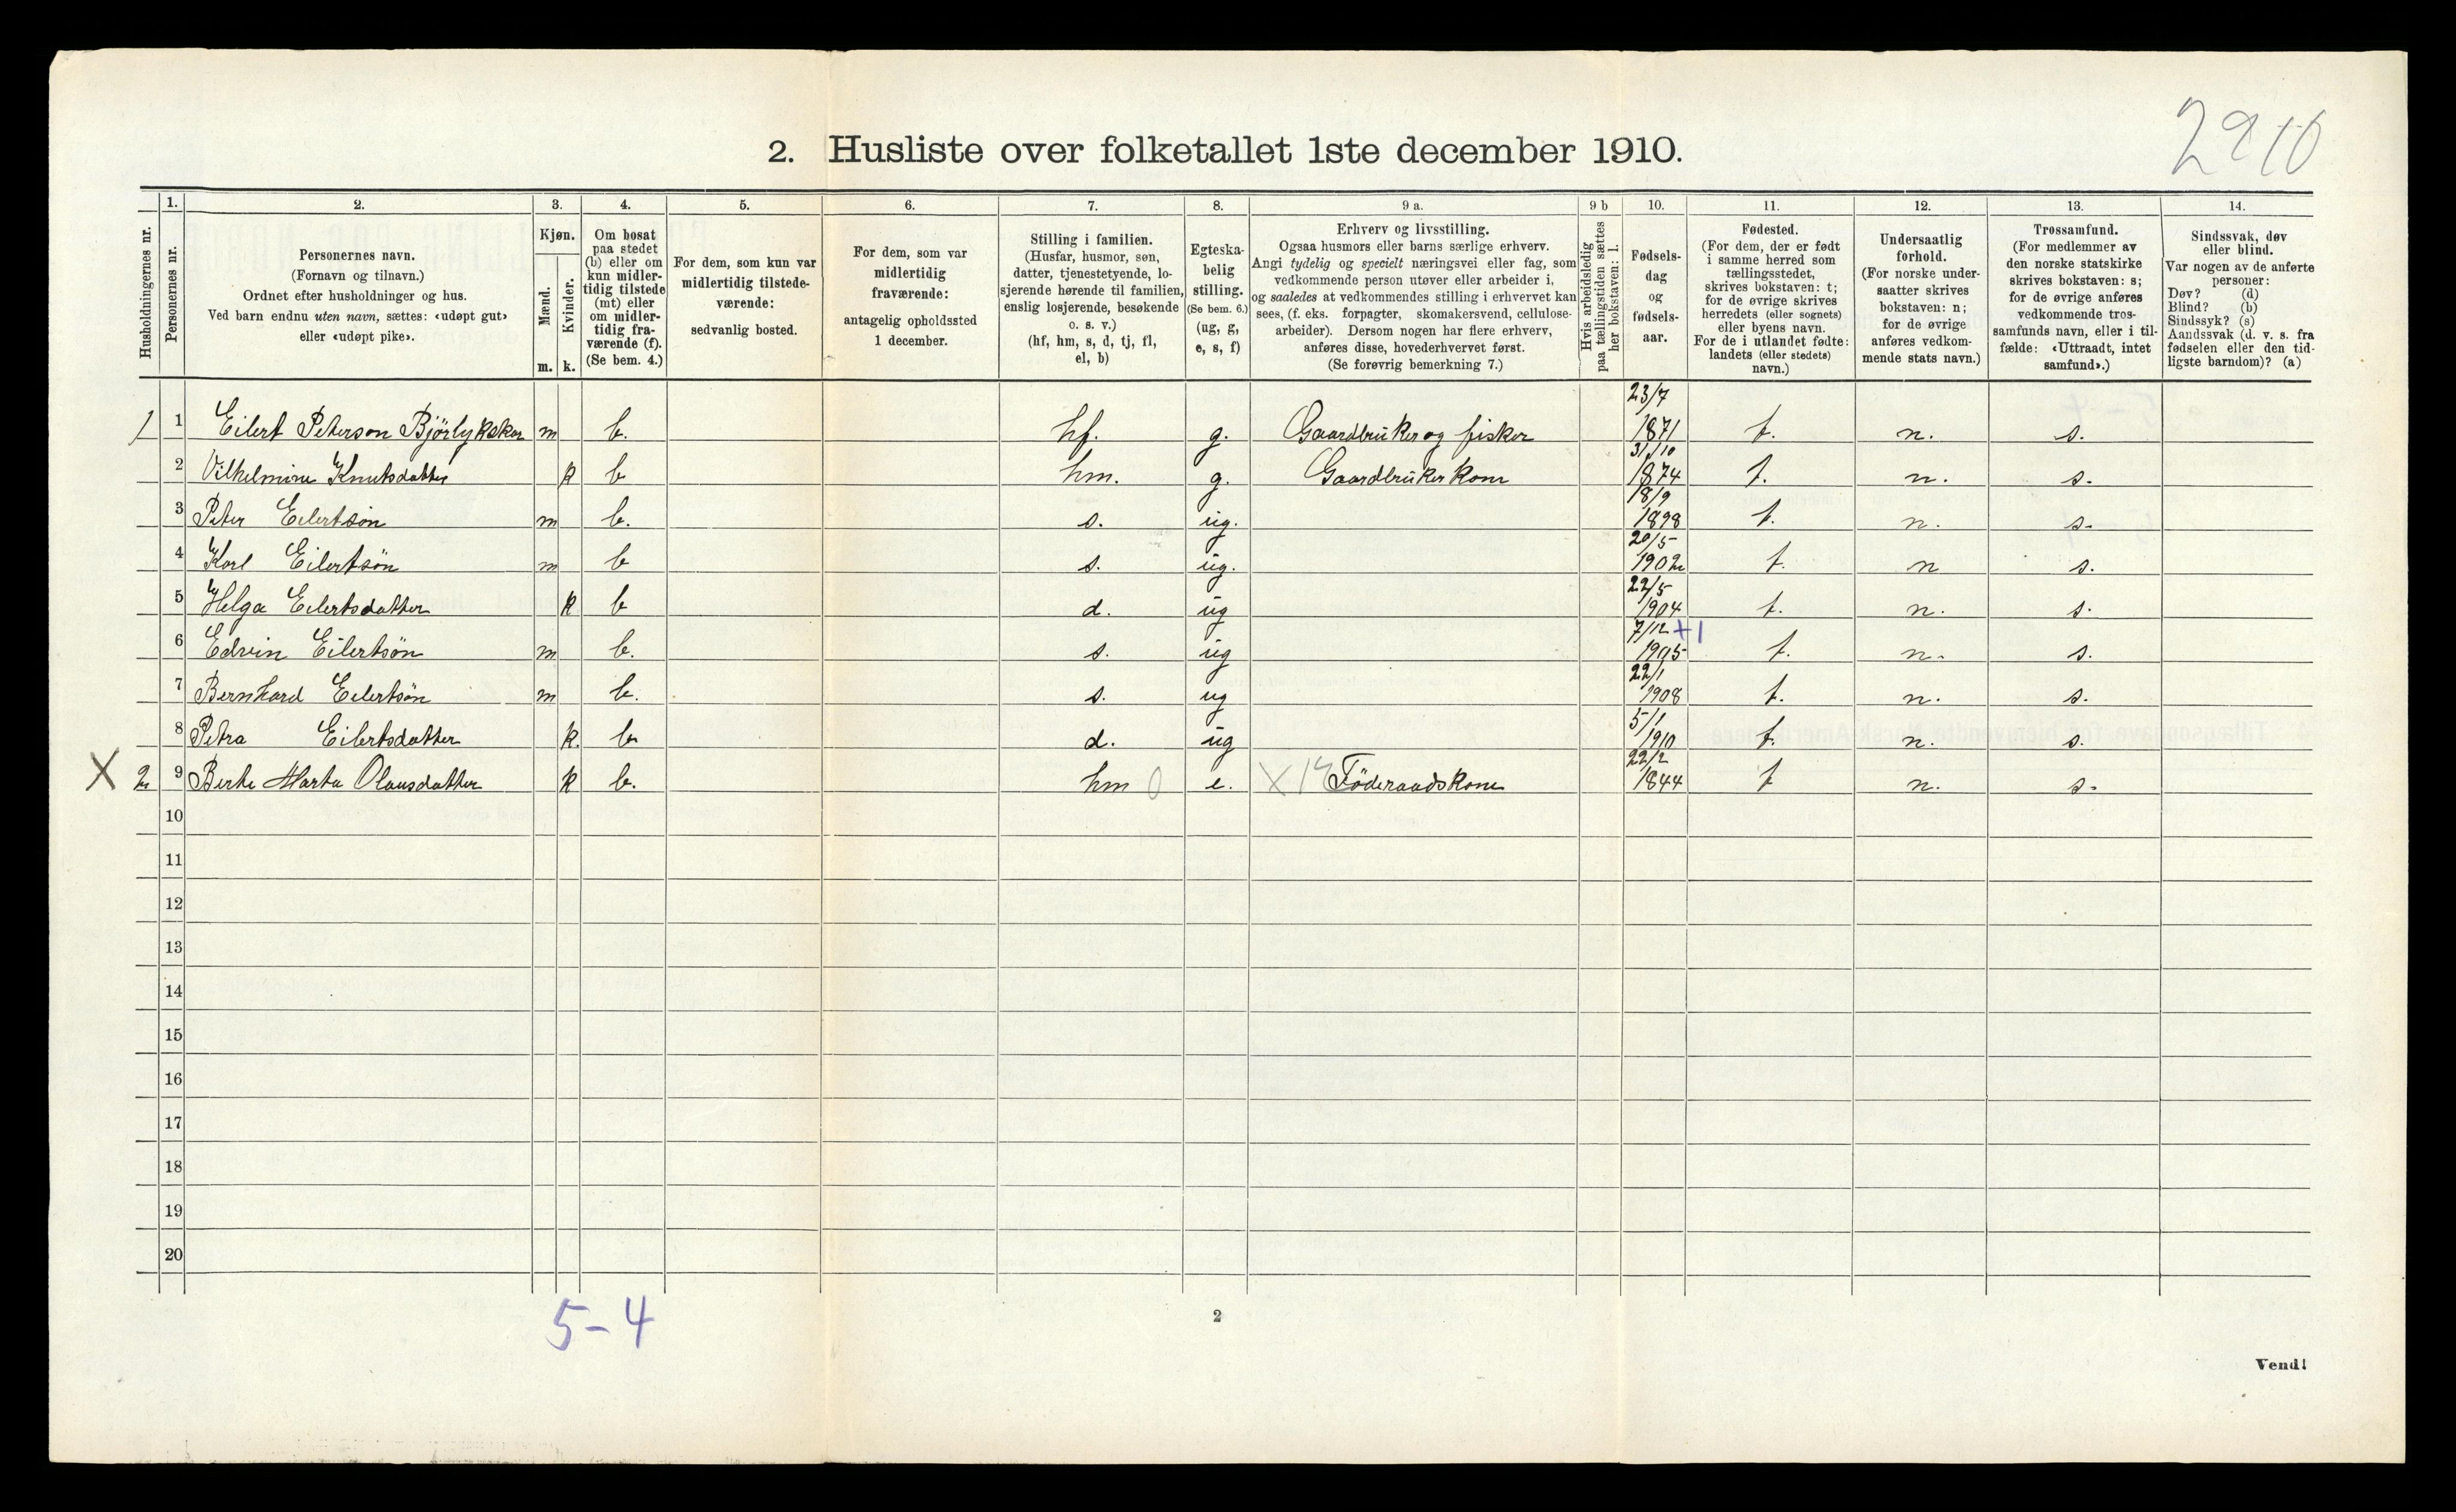 2910
2. Husliste over folketallet 1ste december 1910.
Husholdningernes nr.
1. Personernes nr.
2. Personernes navn.
(Fornavn og tilnavn.)
Ordnet efter husholdninger og hus.
Ved barn endnu uten navn, sættes: «udøpt gut»
eller «udøpt pike».
3. Kjøn.
Mænd. m.
Kvinder. k.
4. Om bosat
paa stedet
(b) eller om
kun midler-
tidig tilstede
(mt) eller
om midler-
tidig fra-
værende (f).
(Se bem. 4.)
5. For dem, som kun var
midlertidig tilstede-
værende:
sedvanlig bosted.
6. For dem, som var
midlertidig
fraværende:
antagelig opholdssted
1 december.
7. Stilling i familien.
(Husfar, husmor, søn,
datter, tjenestetyende, lo-
sjerende hørende til familien,
enslig losjerende, besøkende
o. s. v.)
(hf, hm, s, d, tj, fl,
el, b)
8. Egteska-
belig
stilling.
(Se bem. 6.)
(ug, g,
e, s, f)
9 a. Erhverv og livsstilling.
Ogsaa husmors eller barns særlige erhverv.
Angi tydelig og specielt næringsvei eller fag, som
vedkommende person utøver eller arbeider i,
og saaledes at vedkommendes stilling i erhvervet kan
sees, (f. eks. forpagter, skomakersvend, cellulose-
arbeider). Dersom nogen har flere erhverv,
anføres disse, hovederhvervet først.
(Se forøvrig bemerkning 7.)
9 b Hvis arbeidsledig
paa tællingstiden sættes
her bokstaven: l.
10. Fødsels-
dag
og
fødsels-
aar.
11. Fødested.
(For dem, der er født
i samme herred som
tællingsstedet,
skrives bokstaven: t;
for de øvrige skrives
herredets (eller sognets)
eller byens navn.
For de i utlandet fødte:
landets (eller stedets)
navn.)
12. Undersaatlig
forhold.
(For norske under-
saatter skrives
bokstaven: n;
for de øvrige
anføres vedkom-
mende stats navn.)
13. Trossamfund.
(For medlemmer av
den norske statskirke
skrives bokstaven: s;
for de øvrige anføres
vedkommende tros-
samfunds navn, eller i til-
fælde: «Uttraadt, intet
samfund».)
14. Sindssvak, døv
eller blind.
Var nogen av de anførte
personer:
Døv? (d)
Blind? (b)
Sindssyk? (s)
Aandssvak (d. v. s. fra
fødselen eller den tid-
ligste barndom)? (a)
1 1 Eilert Peterson Björlykskar m b. hf. g. Gaardbruker og fisker 23/7 1871 t. n. s.
2 Vilhelmine Knutsdatter k b hm. g. Gaardbruker kone 31/10 1874 t. n. s.
3 Peter Eilertsön m b. s. ug. 18/9 1898 t. n. s.
4 Karl Eilertsön m b s. ug. 20/5 1902 t. n s.
5 Helga Eilertsdatter k b d. ug 22/5 1904 t. n. s.
6 Edvin Eilertsön m b. s. ug 7/12 +1 1905 t. n. s.
7 Bernhard Eilertsön m b. s. ug 22/1 1908 t. n. s.
8 Petra Eilertsdatter k. b d. ug 5/1 1910 t. n. s.
X 2 9 Berte Marta Olausdatter k b. hm 0 e. X Föderaadskone 22/2 1844 t n. s.
10
11
12
13
14
15
16
17
18
19
20
5-4
2
Vend!